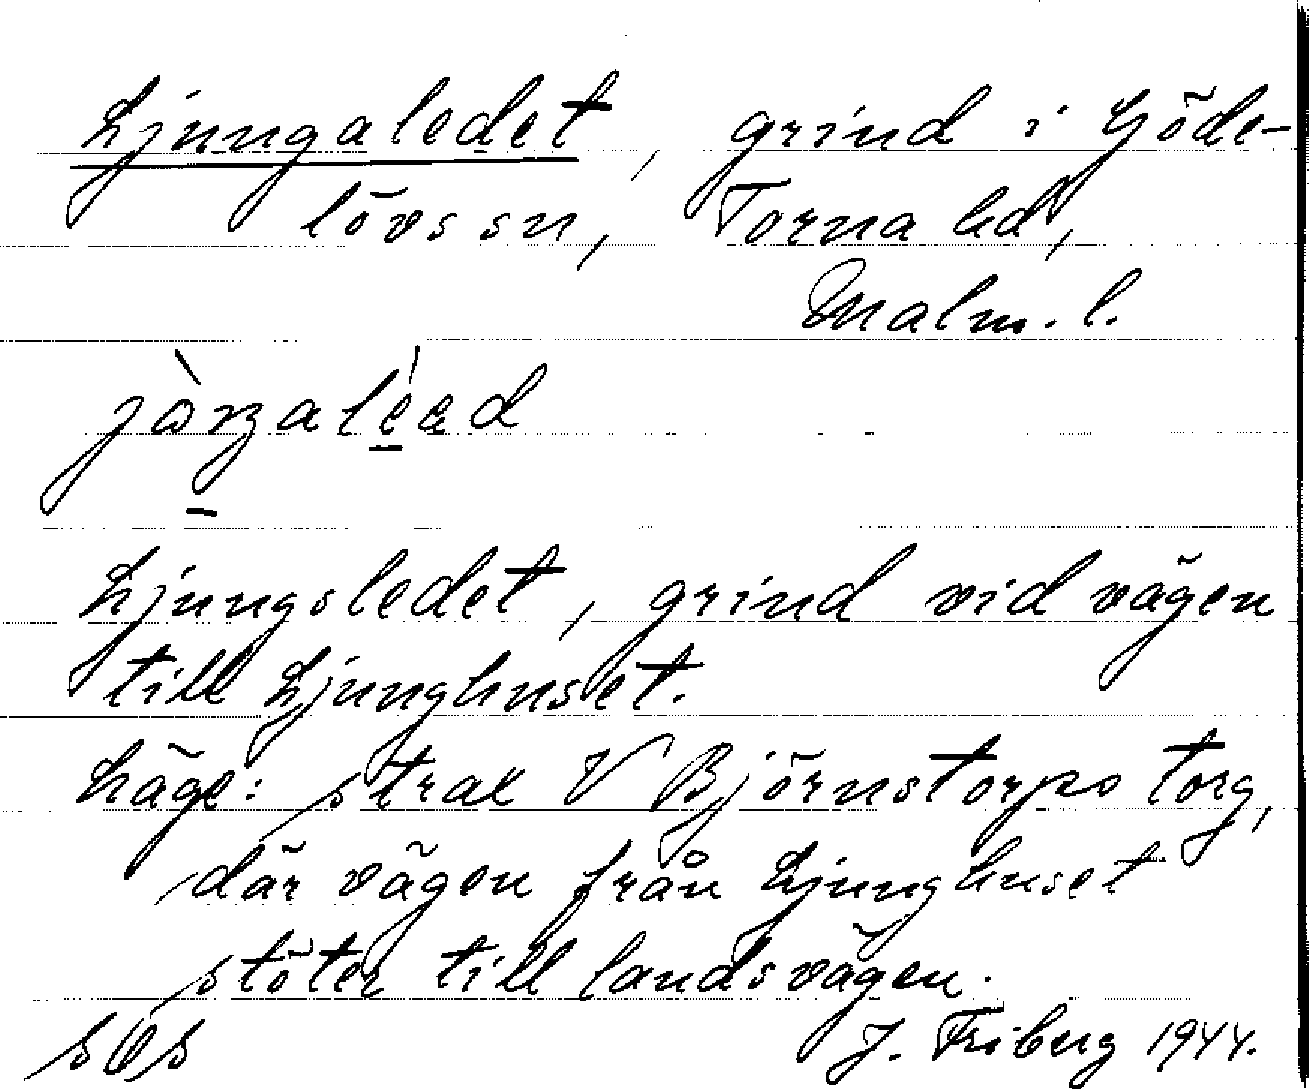 Ljungaledet, grind i Göde-
lövs sn, Torna hd,
Malm. l.
Ljungsledet, grind vid vägen
till Ljunghuset.
Läge: strax V Björnstorps torg,
där vägen från Ljunghuset
stöter till landsvägen.
J. Friberg 1944.